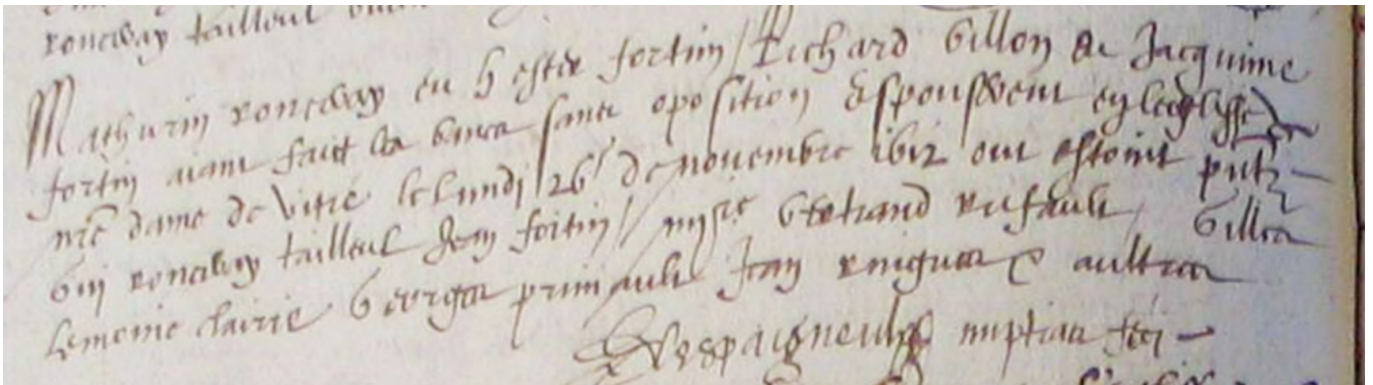 ronceray tailleul
Mathurin ronceray eu h ester fortin / Richard Gillon & Jacquine
fortin aiant faict les bans sans oposition Espouserent en leglisse de
nre dame de Vitré le lundi 26 de novembre 1612 ou estoint
Guy ronceray tailleul Jean fortin / misre Bertrand rufault / Gilles
Lemoine clairie Georges primault Jean & aultres
Despaigneulx nuptias feci